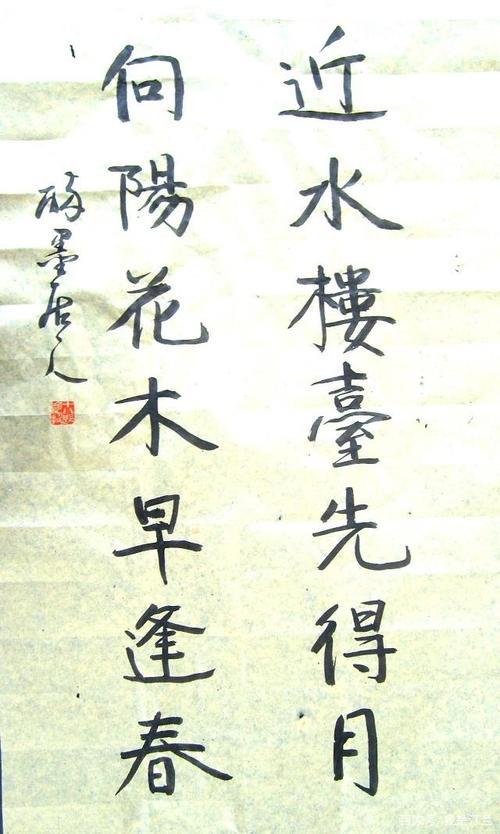 近水樓臺先得月
向陽花木早逢春
醉墨居人